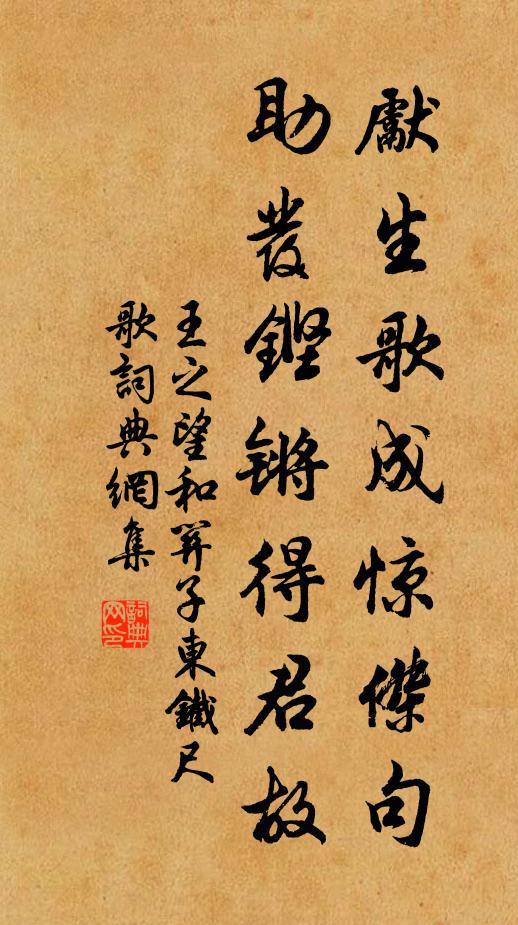 獻生歌成惊傑句
助發鏗锵得君故
王之望和羿子東鐵尺
歌詞典網集
詞典
网印